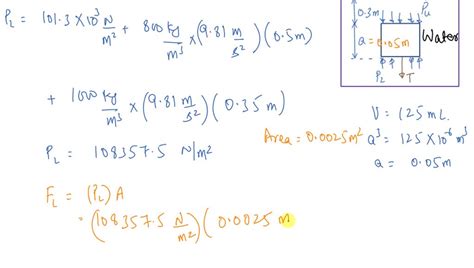 P_L = 101.3 × 10³ N/m² + 800 kg/m³ × (9.81 m/s²) (0.5m)
+ 1000 kg/m³ × (9.81 m/s²) (0.35m)
P_L = 108357.5 N/m²
F_L = (P_L) A
= (108357.5 N/m²) (0.0025 m
0.3m
P_u
a = 0.05m
Water
P_L
T
V = 125 mL
Area = 0.0025m²
a³ = 125 × 10⁻⁶ m³
a = 0.05m